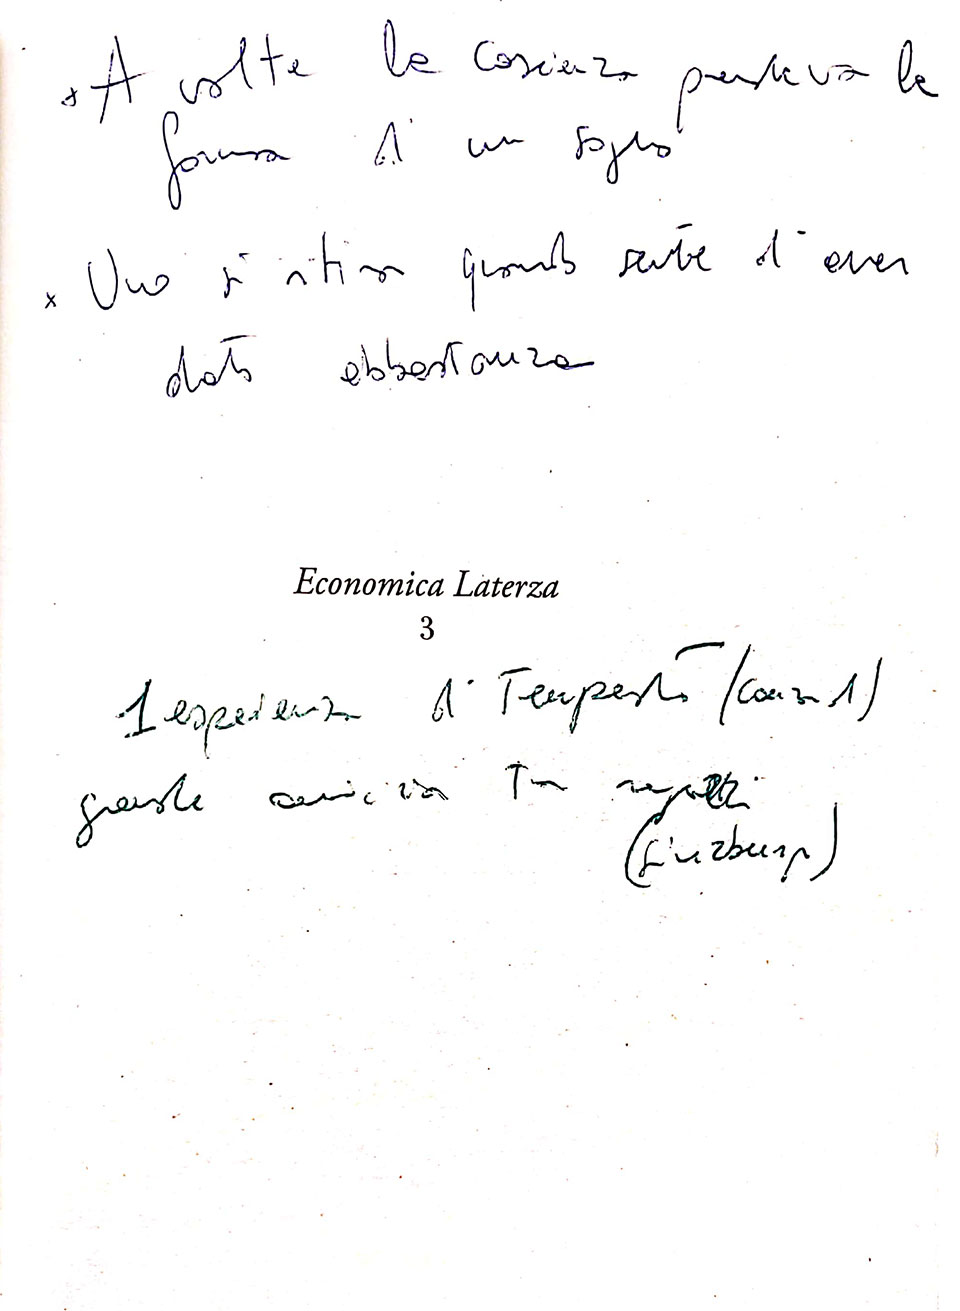 x A volte la coscienza prendeva la
forma di un sogno
x Uno si ritira quando sente d'aver
dato abbastanza
Economica Laterza
3
1 esperienza di Tempesta (Conrad)
grande amicizia tra ragazzi
(Ginzburg)